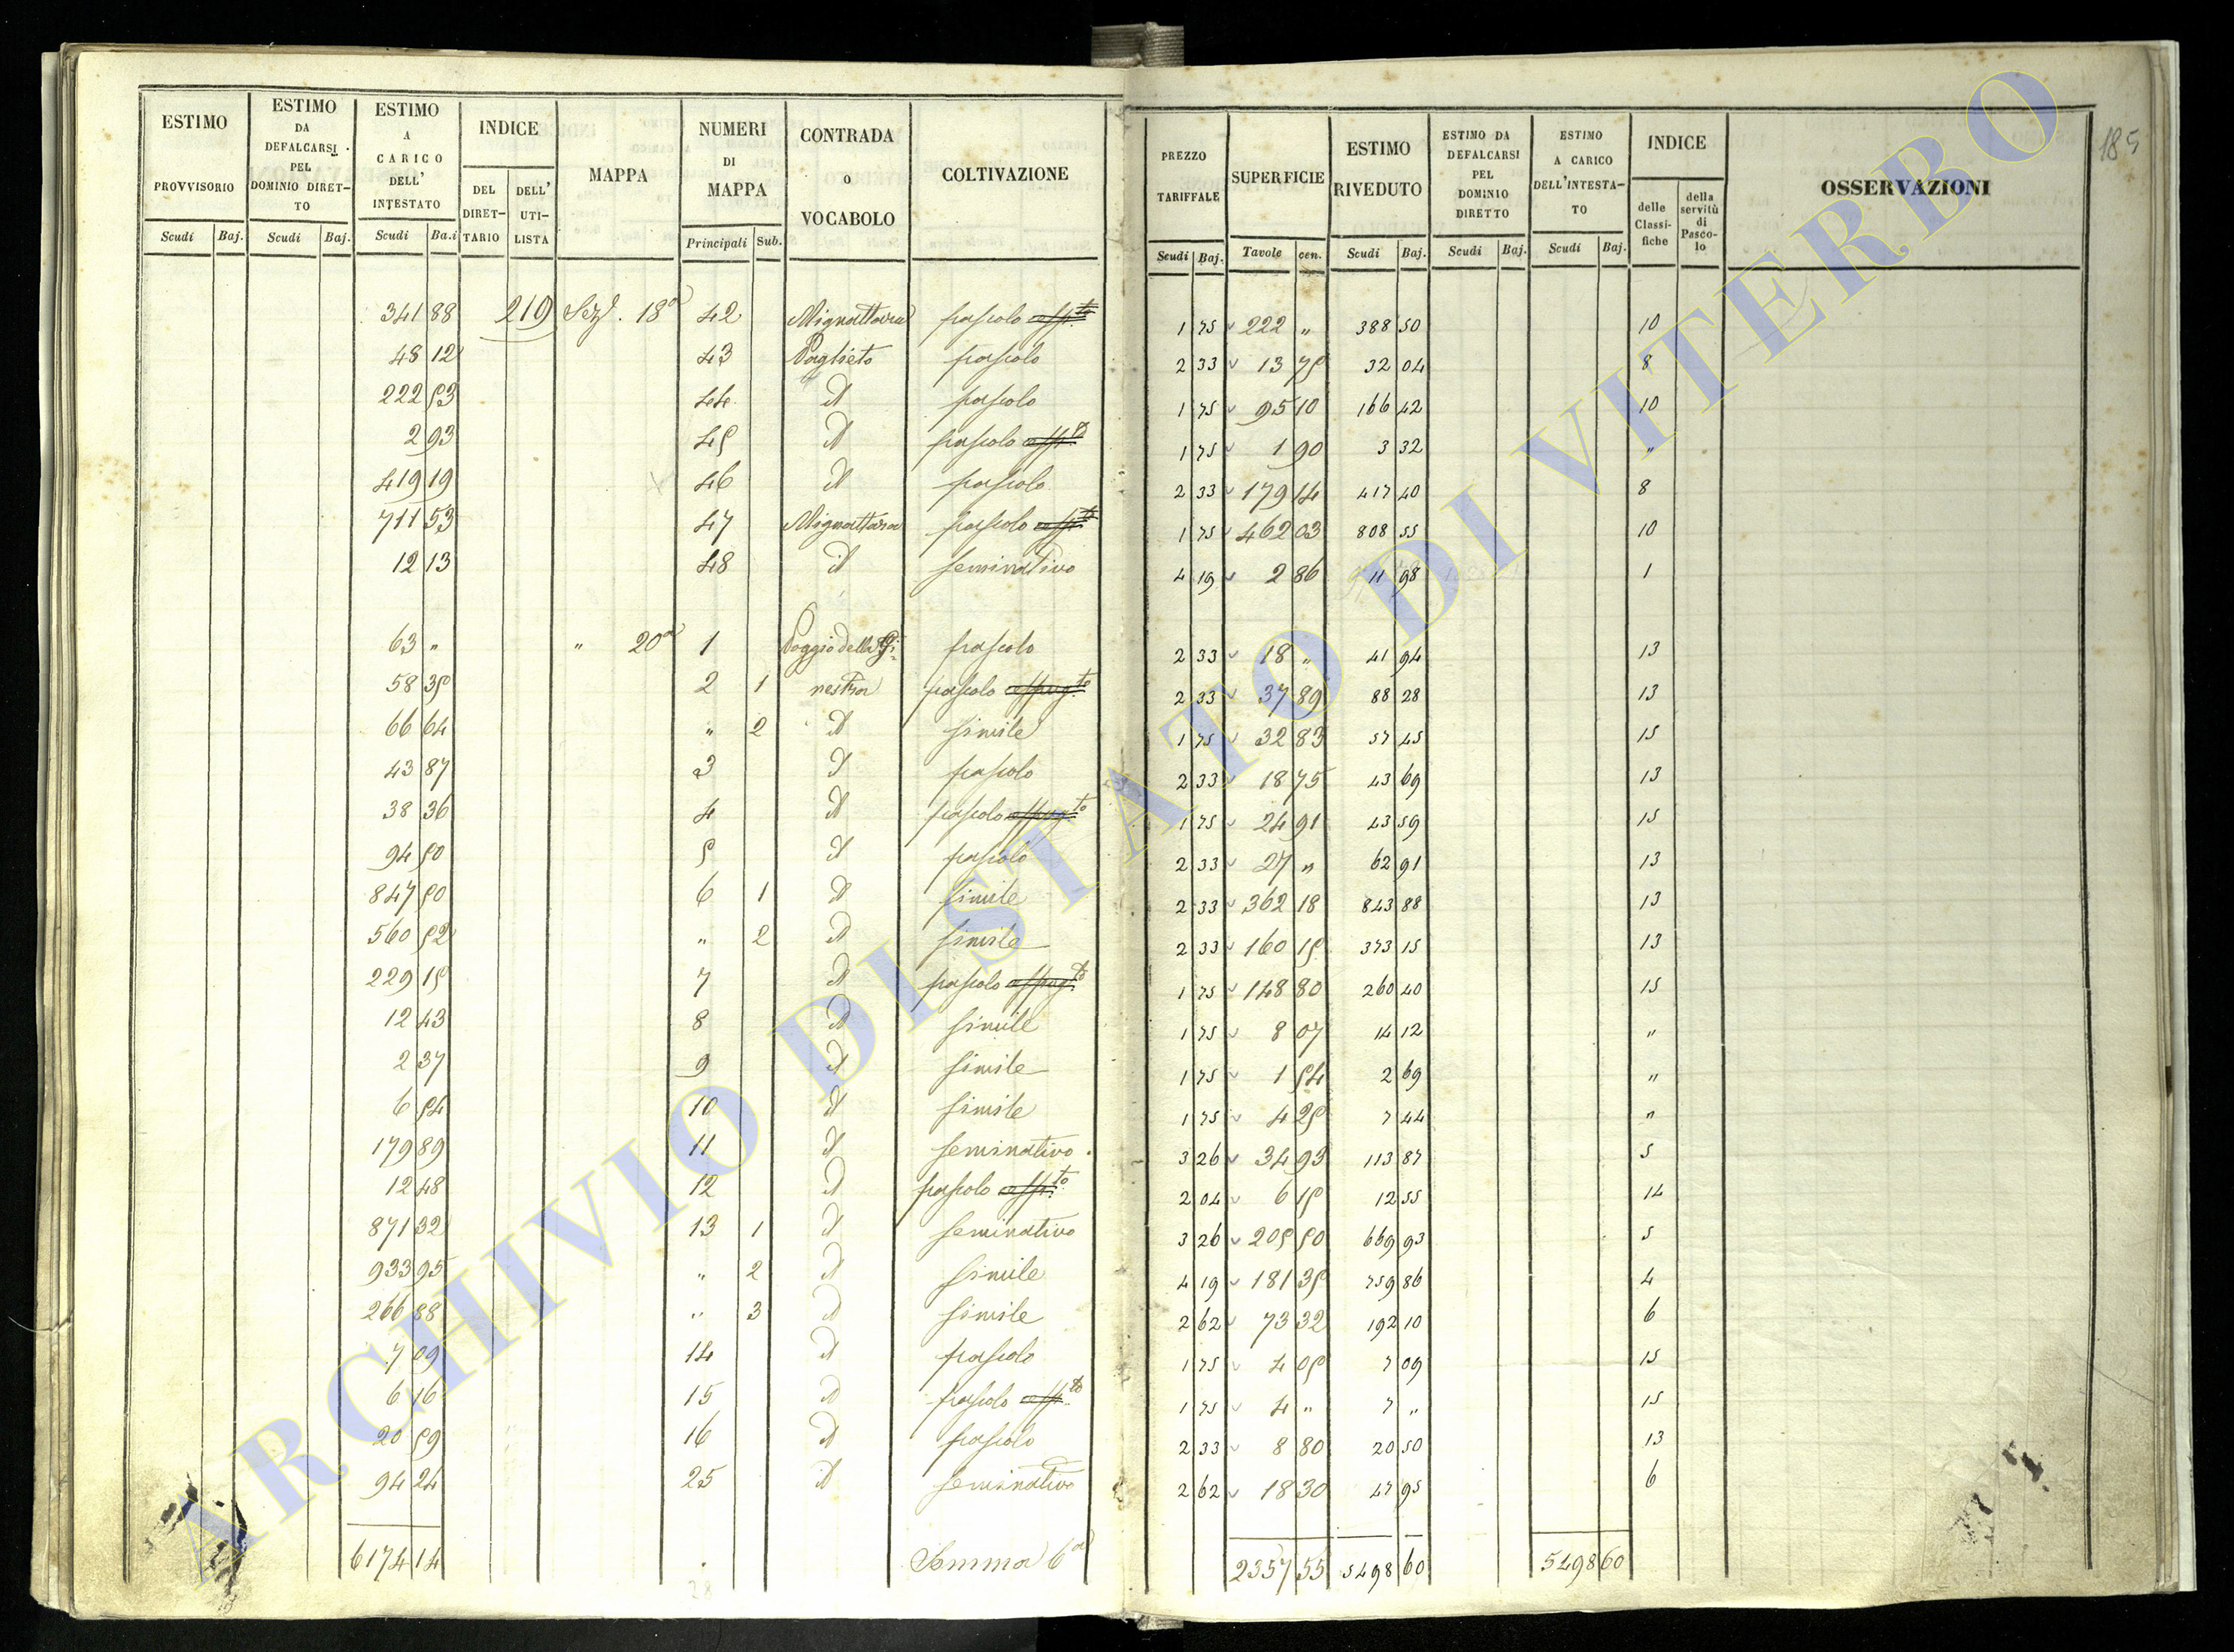 185
ESTIMO PROVVISORIO | ESTIMO DA DEFALCARSI PEL DOMINIO DIRETTO | ESTIMO A CARICO DELL' INTESTATO | INDICE | MAPPA | NUMERI DI MAPPA | CONTRADA o VOCABOLO | COLTIVAZIONE | PREZZO TARIFFALE | SUPERFICIE | ESTIMO RIVEDUTO | ESTIMO DA DEFALCARSI PEL DOMINIO DIRETTO | ESTIMO A CARICO DELL'INTESTATO | INDICE | OSSERVAZIONI
DEL DIRETTARIO | DELL' UTILISTA | delle Classifiche | della servitù di Pascolo
Scudi | Baj. | Scudi | Baj. | Scudi | Ba.i | Principali | Sub. | Scudi | Baj. | Tavole | cen. | Scudi | Baj. | Scudi | Baj. | Scudi | Baj.
341 88 | 219 | Sezᵉ. 18ª | 42 | Mignattara | pascolo | 1 75 | 222 „ | 388 50 | 10
48 12 | 43 | Paglieto | pascolo | 2 33 | 13 75 | 32 04 | 8
222 53 | 44 | id | pascolo | 1 75 | 95 10 | 166 42 | 10
2 93 | 45 | id | pascolo | 1 75 | 1 90 | 3 32 | „
419 19 | 46 | id | pascolo | 2 33 | 179 14 | 417 40 | 8
711 53 | 47 | Mignattara | pascolo | 1 75 | 462 03 | 808 55 | 10
12 13 | 48 | id | seminativo | 4 19 | 2 86 | 11 98 | 1
63 „ | „ 20ª | 1 | Poggio della Gi- | pascolo | 2 33 | 18 „ | 41 94 | 13
58 35 | 2 | 1 | nestra | pascolo | 2 33 | 37 89 | 88 28 | 13
66 64 | „ | 2 | id | simile | 1 75 | 32 83 | 57 45 | 15
43 87 | 3 | id | pascolo | 2 33 | 18 75 | 43 69 | 13
38 36 | 4 | id | pascolo | 1 75 | 24 91 | 43 59 | 15
94 50 | 5 | id | pascolo | 2 33 | 27 „ | 62 91 | 13
847 50 | 6 | 1 | id | simile | 2 33 | 362 18 | 843 88 | 13
560 52 | „ | 2 | id | simile | 2 33 | 160 15 | 373 15 | 13
229 15 | 7 | id | pascolo | 1 75 | 148 80 | 260 40 | 15
12 43 | 8 | id | simile | 1 75 | 8 07 | 14 12 | „
2 37 | 9 | id | simile | 1 75 | 1 54 | 2 69 | „
6 54 | 10 | id | simile | 1 75 | 4 25 | 7 44 | „
179 89 | 11 | id | seminativo | 3 26 | 34 93 | 113 87 | 5
12 48 | 12 | id | pascolo | 2 04 | 6 15 | 12 55 | 14
871 32 | 13 | 1 | id | seminativo | 3 26 | 205 50 | 669 93 | 5
933 95 | „ | 2 | id | simile | 4 19 | 181 35 | 759 86 | 4
266 88 | „ | 3 | id | simile | 2 62 | 73 32 | 192 10 | 6
7 09 | 14 | id | pascolo | 1 75 | 4 05 | 7 09 | 15
6 16 | 15 | id | pascolo | 1 75 | 4 „ | 7 „ | 15
20 59 | 16 | id | pascolo | 2 33 | 8 80 | 20 50 | 13
94 24 | 25 | id | seminativo | 2 62 | 18 30 | 47 95 | 6
6174 14 | Somma 6ª | 2357 55 | 5498 60 | 5498 60
28
ARCHIVIO DI STATO DI VITERBO